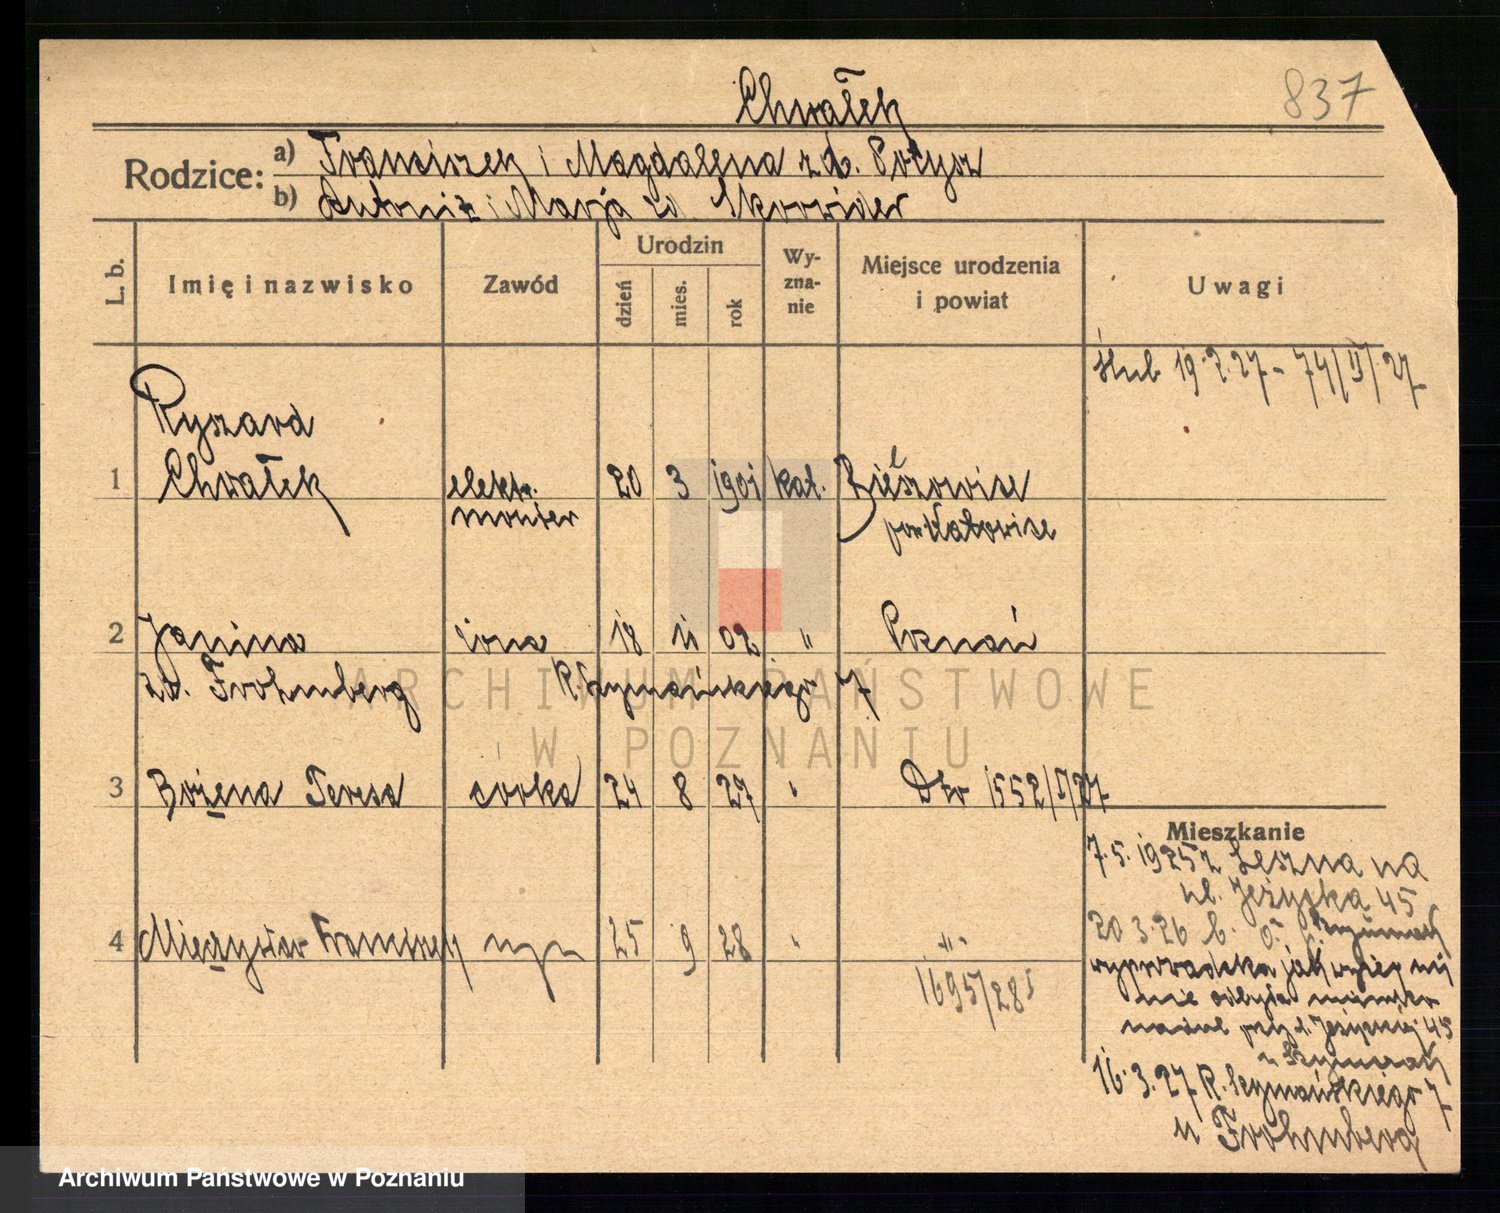 837
Chwałek
Rodzice: a) Franciszek i Magdalena z d. Połysz
b) Antoni i Marja z d. Skowider
L. b.
Imię i nazwisko
Zawód
Urodzin
dzień
mies.
rok
Wy-
zna-
nie
Miejsce urodzenia
i powiat
Uwagi
ślub 19.2.27 - 74/II/27
Ryszard
1 Chwałek elektr. 20 3 1901 kat. Bielszowice
monter pow Katowice
2 Janina żona 18 11 02 " Poznań
zd. Frohmberg R. Szymańskiego 7
3 Bożena Teresa córka 24 8 27 " Dtr 1552/I/27
Mieszkanie
7.5.1925 z Leszna na
ul. Jeżycka 45
4 Mieczysław Franciszek syn 25 9 28 " "
1695/28
20.3.26
wyprowadzka jak wyżej
nie odbyła
45
16.3.27 R. Szymańskiego 7
u Frohmberg
ARCHIWUM PAŃSTWOWE
W POZNANIU
Archiwum Państwowe w Poznaniu